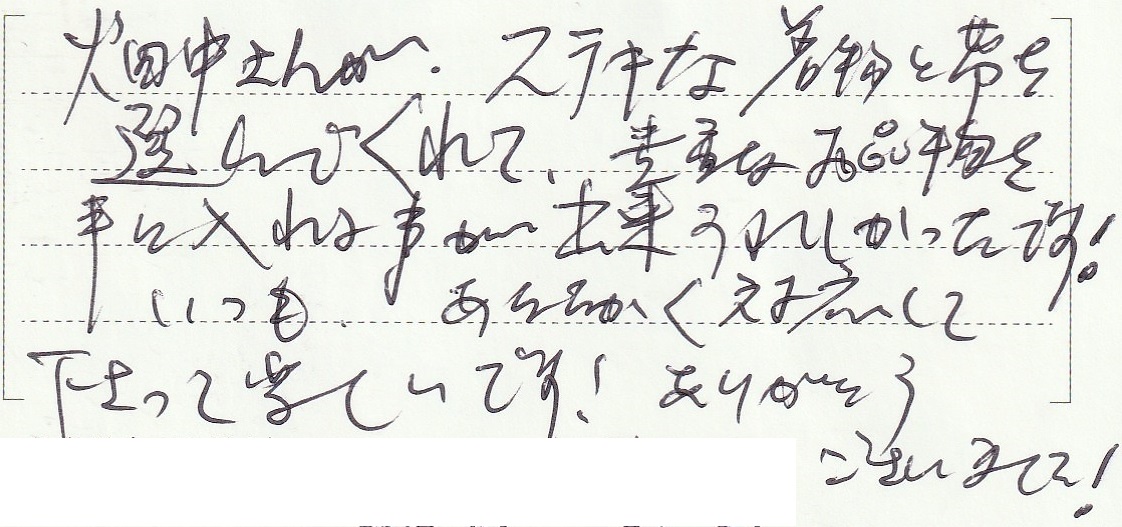 畑中さんが、ステキな着物と帯を
選んでくれて、貴重なお品物を
手に入れる事が出来うれしかったです!
いつも、あたたかく対応して
下さって楽しいです! ありがとう
ございました!